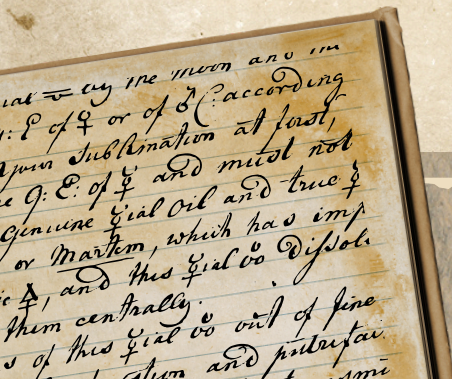 by the Moon and in
: E of ☿ or of ☿ (according
your Sublimation at first,
Q: E: of ☿ and must not
Genuine ☿ial Oil and true ☿
or Martem, which has imp
, and this ☿ial oo dissol
them centrally.
s of this ☿ial oo out of fine
tion and putrifac